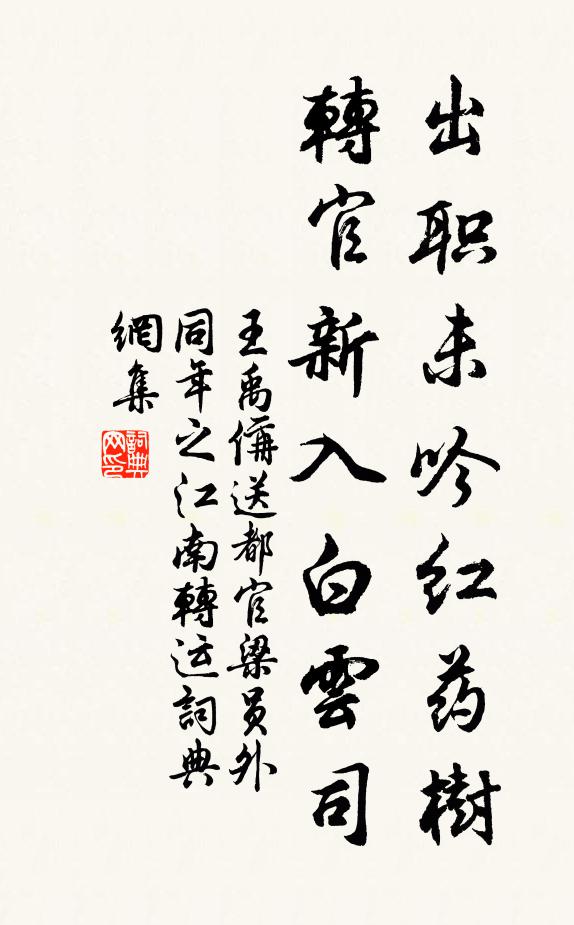 出职未吟红药樹
轉官新入白雲司
王禹偁送都官梁员外
同年之江南轉运詞典
網集
詞典网印